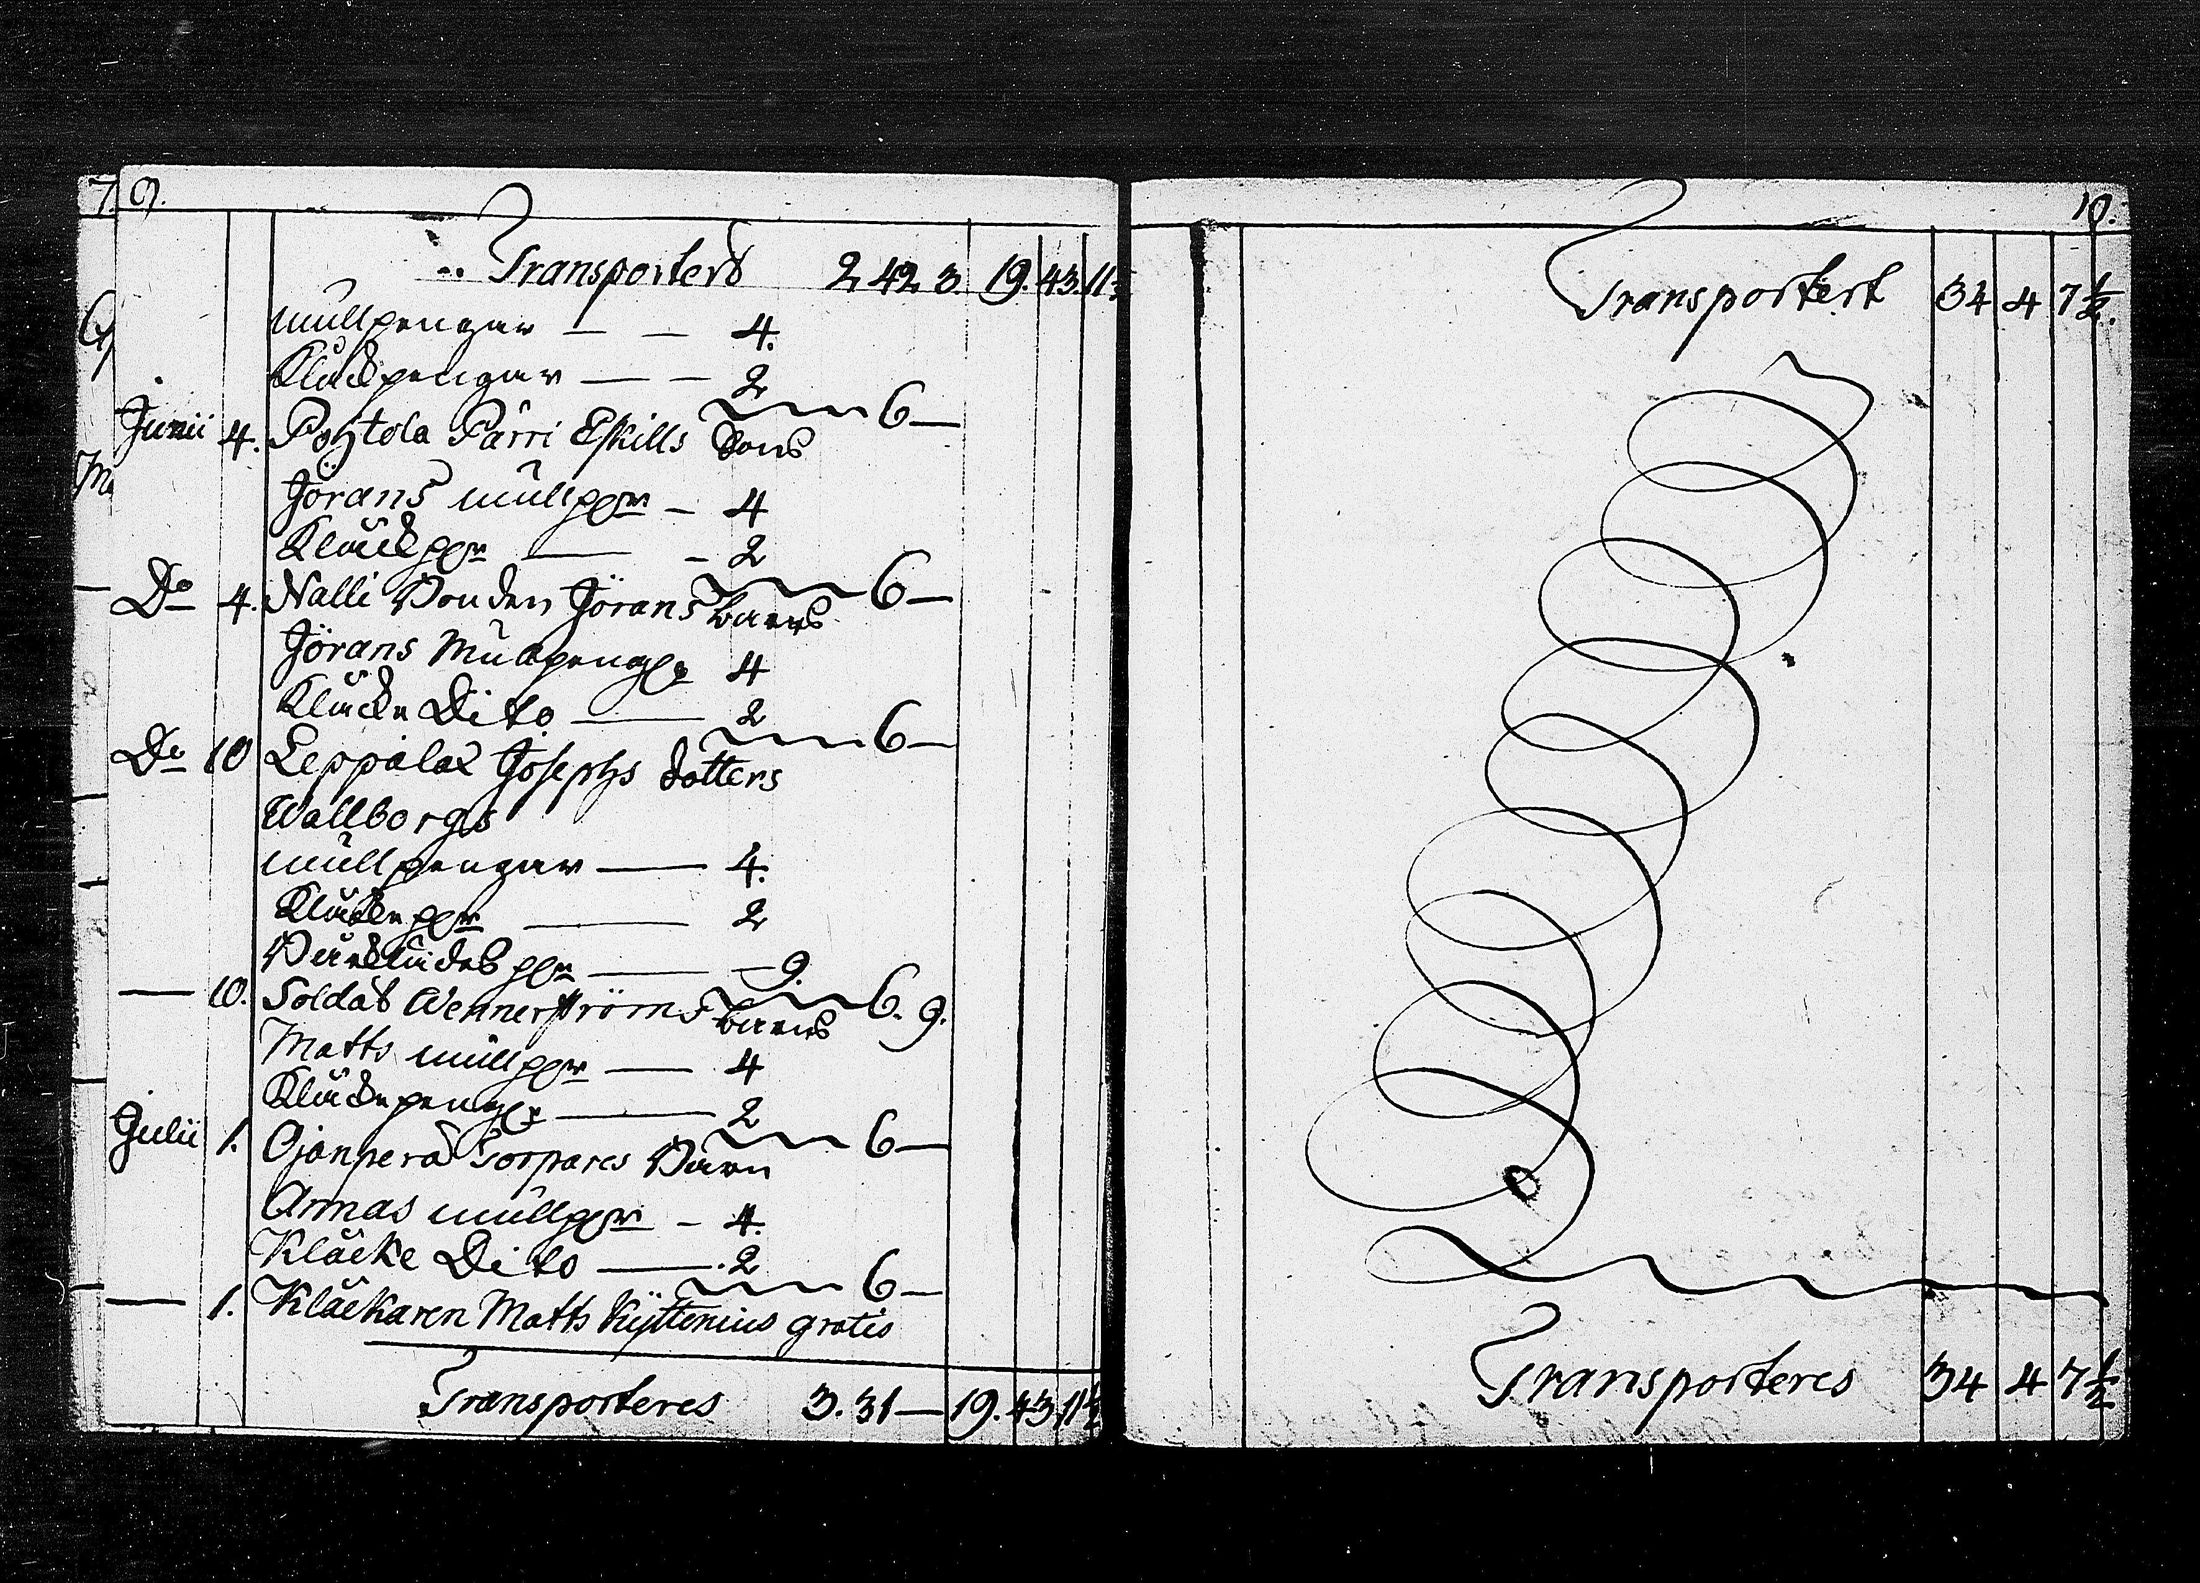 7. 9.
Transporterd 2 42 3. 19. 43. 11½
mullpengar — — 4.
Klåckpengar — — 2
6 —
Junii 4. Pohtola Pärri Eskills Sons
Jörans mullpgr — 4
Klåckpgr — — 2
6 —
Do 4. Nalli Bonden Jörans barns
Jörans Mullpengr 4
Klåcke Dito — 2
6 —
Do 10 Leppälax Josephs dotters
Wallborgs
mullpengar — 4.
Klåckepgr — 2
pgr — — 9.
6. 9.
— 10. Soldat Wennerströms barns
Matts mullpgr — 4
Klåckepengr — 2
6 —
Julii 1. Ojanperä Torpares Barn
Annas mullpgr — 4.
Klåcke Dito — 2
6 —
— 1. Klåckaren Matts Kyttenius gratis
Transporteres 3. 31 — 19. 43 11½
10.
Transportert 34 4 7½.
Transporteres 34 4 7½